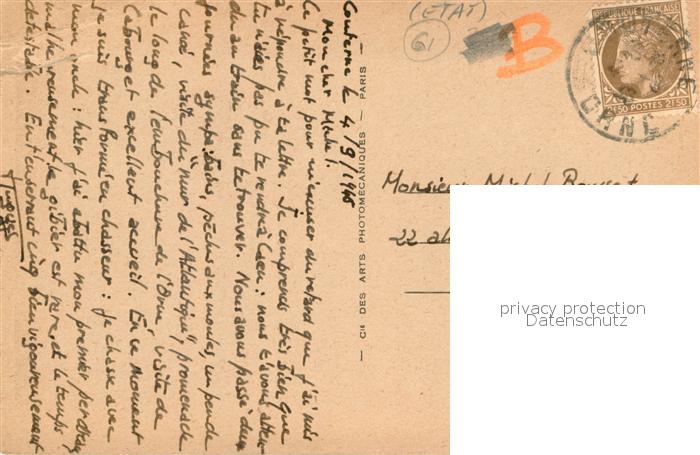 Couterne le 4/9/1946
Mon cher Michel.
Ce petit mot pour m'excuser du retard que j'ai mis
à répondre à ta lettre. Je comprends très bien que
tu n'aies pas pu te rendre à Caen : nous t'avons atten-
du au train sans te trouver. Nous avons passé deux
journées sympathiques, pêche aux moules, un peu de
canoë, visite du "mur de l'Atlantique", promenade
le long de l'embouchure de l'Orne, visite de
Cabourg et excellent accueil. En ce moment
je suis transformé en chasseur : je chasse avec
mon oncle : hier j'ai abattu mon premier perdreau
malheureusement le gibier est rare, et le temps
détestable. En t'enserrant cinq bien vigoureusement
— CIE DES ARTS PHOTOMÉCANIQUES — PARIS —
(ETAT)
61
B
REPUBLIQUE FRANÇAISE
2F50 POSTES 2F50
ORNE
Monsieur Michel
22
privacy protection
Datenschutz